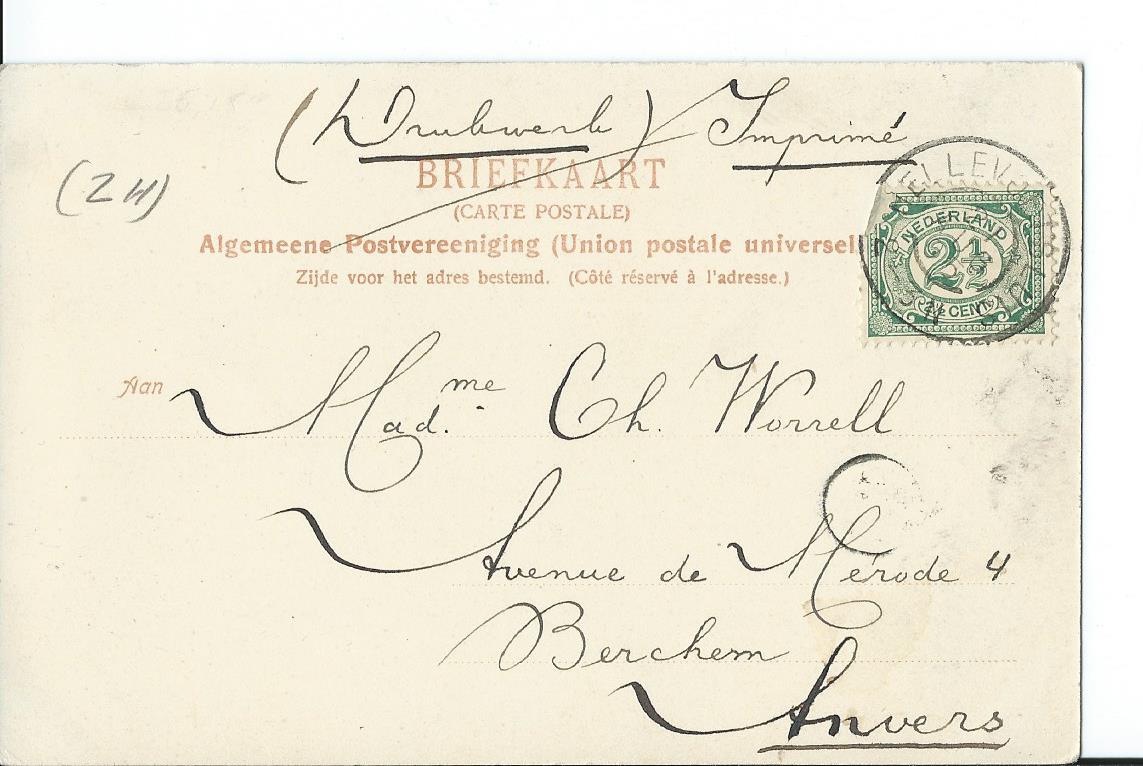 (Drukwerk) Imprimé
(ZH)
BRIEFKAART
(CARTE POSTALE)
Algemeene Postvereeniging (Union postale universell
Zijde voor het adres bestemd. (Côté réservé à l'adresse.)
NEDERLAND
2½
2½ CENT
Aan Mad.me Ch. Worrell
Avenue de Mérode 4
Berchem
Anvers